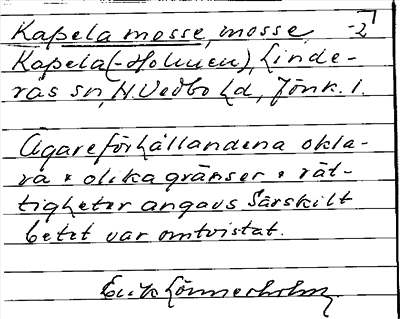 Kapela mosse, mosse -27
Kapela (-Holmen), Linde-
rås sn, N. Vedbo hd, Jönk. l.
Ägareförhållandena okla-
ra & olika gränser & rät-
tigheter angavs Särskilt
betet var omtvistat.
Erik Lönnerholm